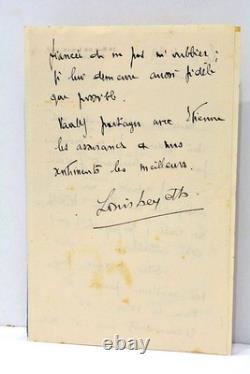 fiancée de ne pas m'oublier ;
je lui demeure aussi fidèle
que possible.
Veuillez partager avec Etienne
les assurances de mes
sentiments les meilleurs.